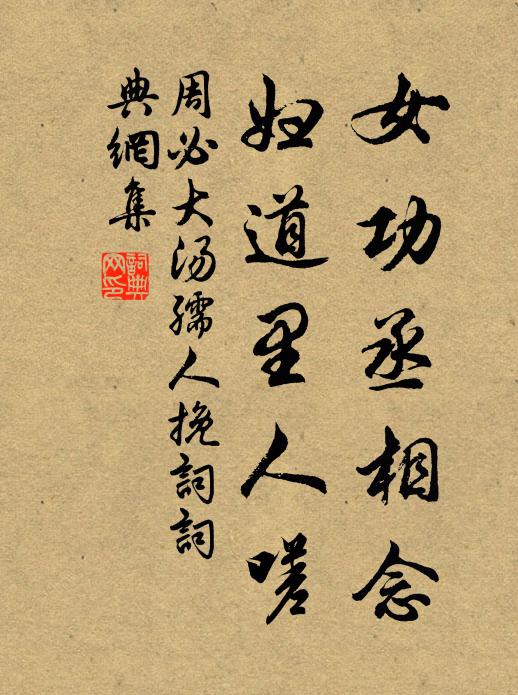 女功丞相念
妇道里人嗟
周必大汤孺人挽詞詞
典網集
詞典
网印